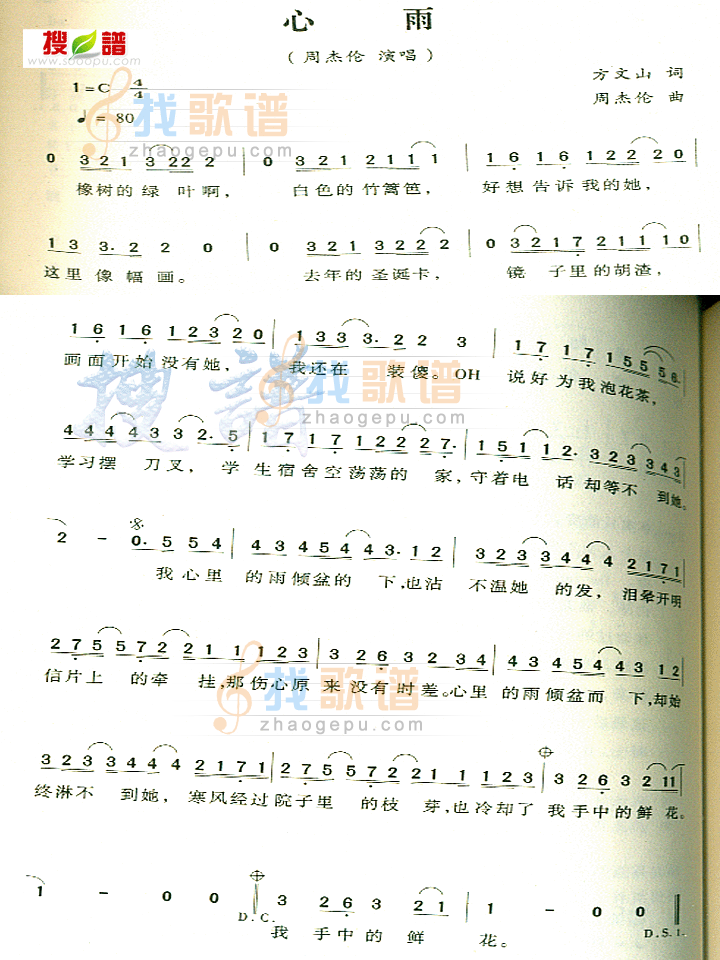 心 雨
搜谱
www.sooopu.com
(周杰伦 演唱)
1=C 4/4
方文山 词
♩= 80
周杰伦 曲
找歌谱
zhaogepu.com
0 3 2 1 3 2 2 2 | 0 3 2 1 2 1 1 1 | 1 6 1 6 1 2 2 2 0 |
橡树的绿 叶啊, 白色的竹篱笆, 好想告诉我的她,
1 3 3· 2 2 0 | 0 3 2 1 3 2 2 2 | 0 3 2 1 7 2 1 1 1 0 |
这里像幅画。 去年的圣诞卡, 镜 子里的胡渣,
1 6 1 6 1 2 3 2 0 | 1 3 3 3· 2 2 3 | 1 7 1 7 1 5 5 5 6·
画面开始没有她, 我还在 装傻。OH 说好为我泡花茶,
搜谱
找歌谱
zhaogepu.com
4 4 4 4 3 3 2· 5 | 1 7 1 7 1 2 2 2 2 7· | 1 5 1 1 2· 2 3 3 4 3
学习摆 刀叉, 学生宿舍空荡荡的 家,守着电 话却等不 到她。
2 - 0· 5 5 4 | 4 3 4 5 4 4 3· 1 2 | 3 2 3 3 4 4 4 2 1 7 1
我心里 的雨倾盆的 下,也沾 不温她 的发, 泪晕开明
2 7 5 5 7 2 2 1 1 1 2 3 | 3 2 6 3 2 3 4 | 4 3 4 5 4 4 3 1 2
信片上 的牵 挂,那伤心原 来没有时差。心里 的雨倾盆而 下,却始
找歌谱
zhaogepu.com
3 2 3 3 4 4 4 2 1 7 1 | 2 7 5 5 7 2 2 1 1 1 2 3 | 3 2 6 3 2 1 1
终淋不 到她, 寒风经过院子里 的枝 芽,也冷却了 我手中的鲜 花。
1 - 0 0 | 3 2 6 3 2 1 | 1 - 0 0
D.C.
D.S.1.
我 手中的 鲜 花。